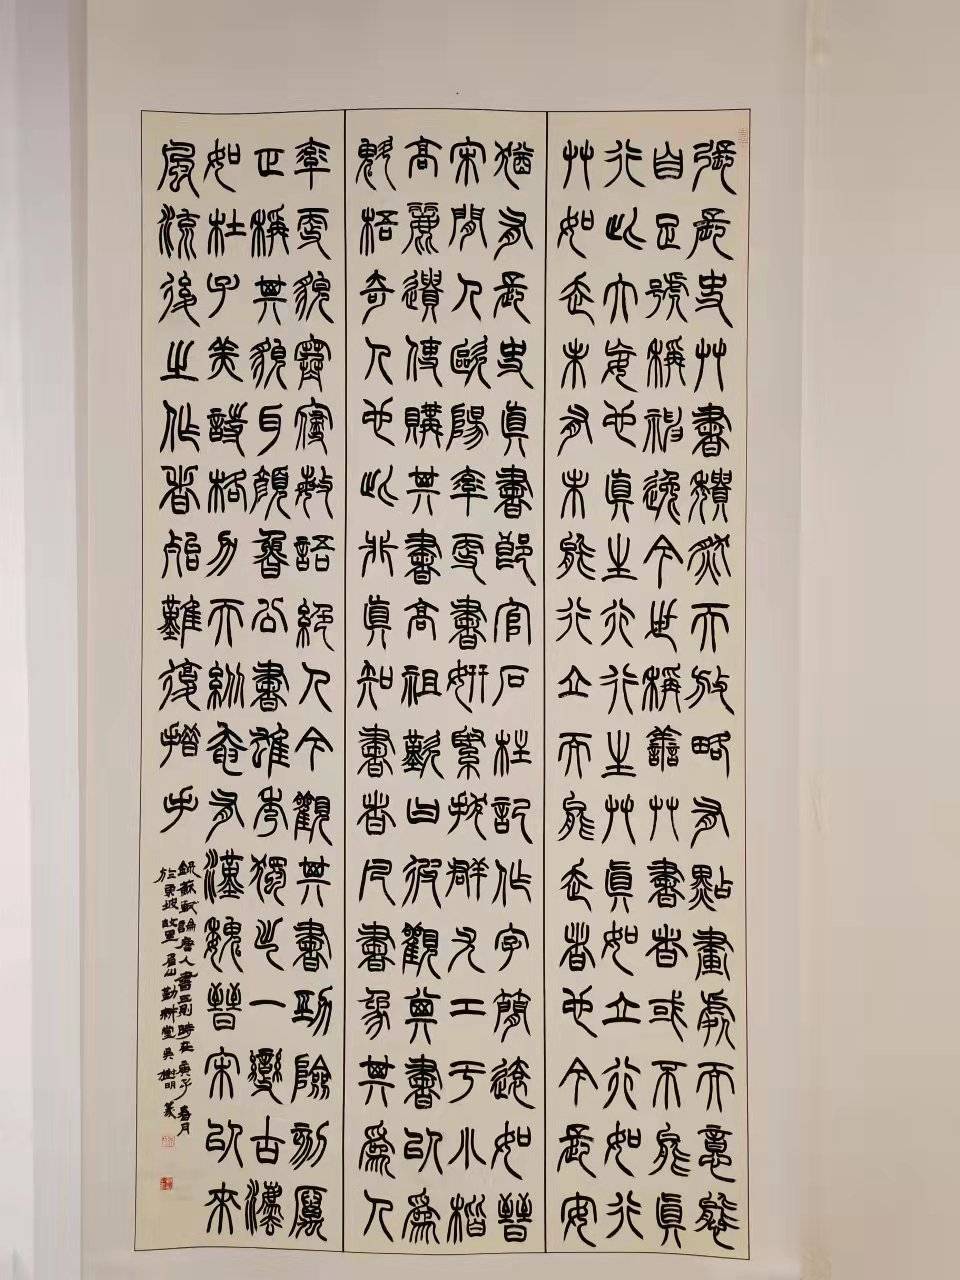 張長史艸書穨然天放略有點畫處而意態
自足號稱神逸今世稱善艸書者或不能真
行此大妄也真生行行生艸真如立行如行
艸如走未有未能行立而能走者也今長安
猶有長史真書郎官石柱記作字簡遠如晉
宋間人歐陽率更書妍緊拔群尤工于小楷
高麗遣使購其書高祖歎曰彼觀其書以為
魁梧奇人也此非真知書者凡書象其為人
率更貌寒寢敏語絕人今觀其書勁險刻厲
正稱其貌耳顏魯公書雄秀獨出一變古法
如杜子美詩格力天縱奄有漢魏晉宋以來
風流後之作者殆難復措手
錄蘇軾論唐人書三則時在庚子春月
於東坡故里眉山勤耕堂吳樹明篆